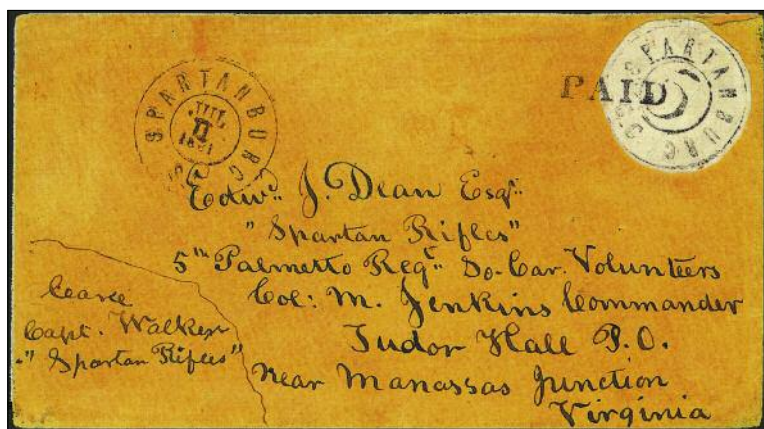 SPARTANBURG
JUL
11
1861
S.C.
PAID
SPARTANBURG
5
Edwd. J. Dean Esqr.
"Spartan Rifles"
5th Palmetto Regt. So. Car. Volunteers
Col: M. Jenkins Commander
Tudor Hall P.O.
Near Manassas Junction
Virginia
Care
Capt. Walker
"Spartan Rifles"